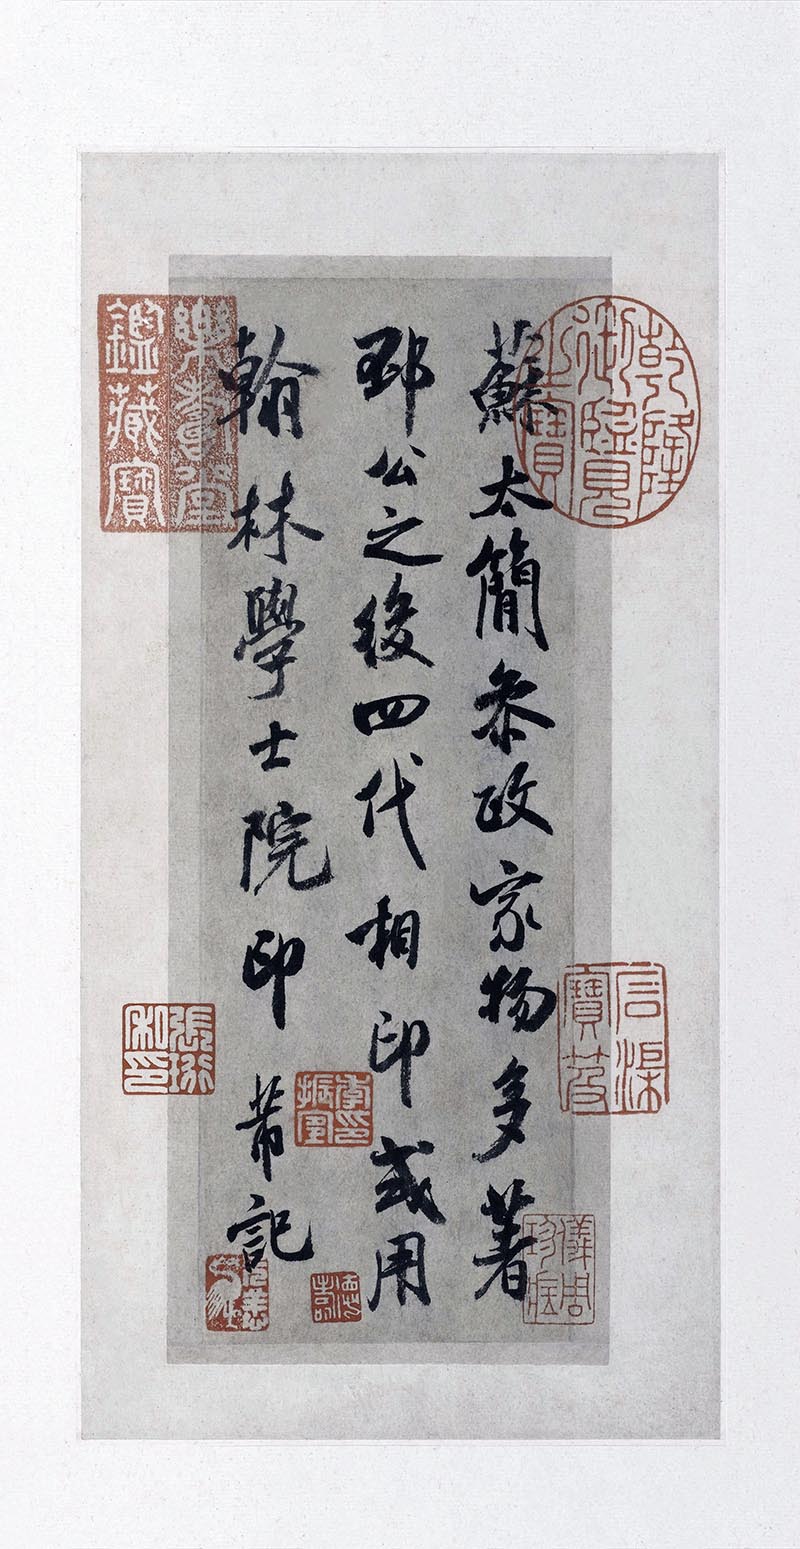 蘇太簡参政家物多著
邳公之後四代相印或用
翰林學士院印 芾記
乾隆御覽之寶
石渠寶笈
儀周珍藏
樂善堂鑑藏寶
張珩私印
季印振宜